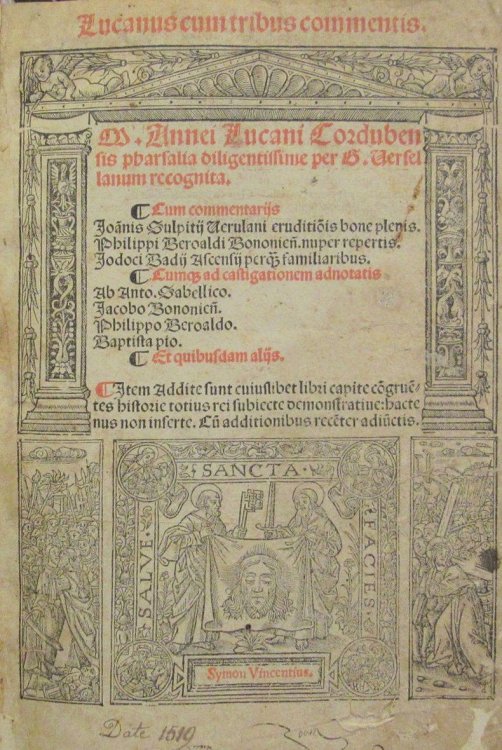 Lucanus cum tribus commentis.
M. Annei Lucani Corduben
sis pharsalia diligentissime per G. Versel
lanum recognita.
¶ Cum commentarijs
Joānis Sulpitij Verulani eruditiōis bone plenis.
Philippi Beroaldi Bononieñ. nuper repertis.
Jodoci Badij Ascensij perq̃ familiaribus.
¶ Cumqꝫ ad castigationem adnotatis
Ab Anto. Sabellico.
Jacobo Bononieñ.
Philippo Beroaldo.
Baptista pio.
¶ Et quibusdam alijs.
¶ Item Addite sunt cuiuslibet libri capite cōgruē-
tes historie totius rei subiecte demonstratiue: hacte
nus non inserte. Cū additionibus recēter adiūctis.
SALVE
SANCTA
FACIES
Symon Vincentius.
Date 1519